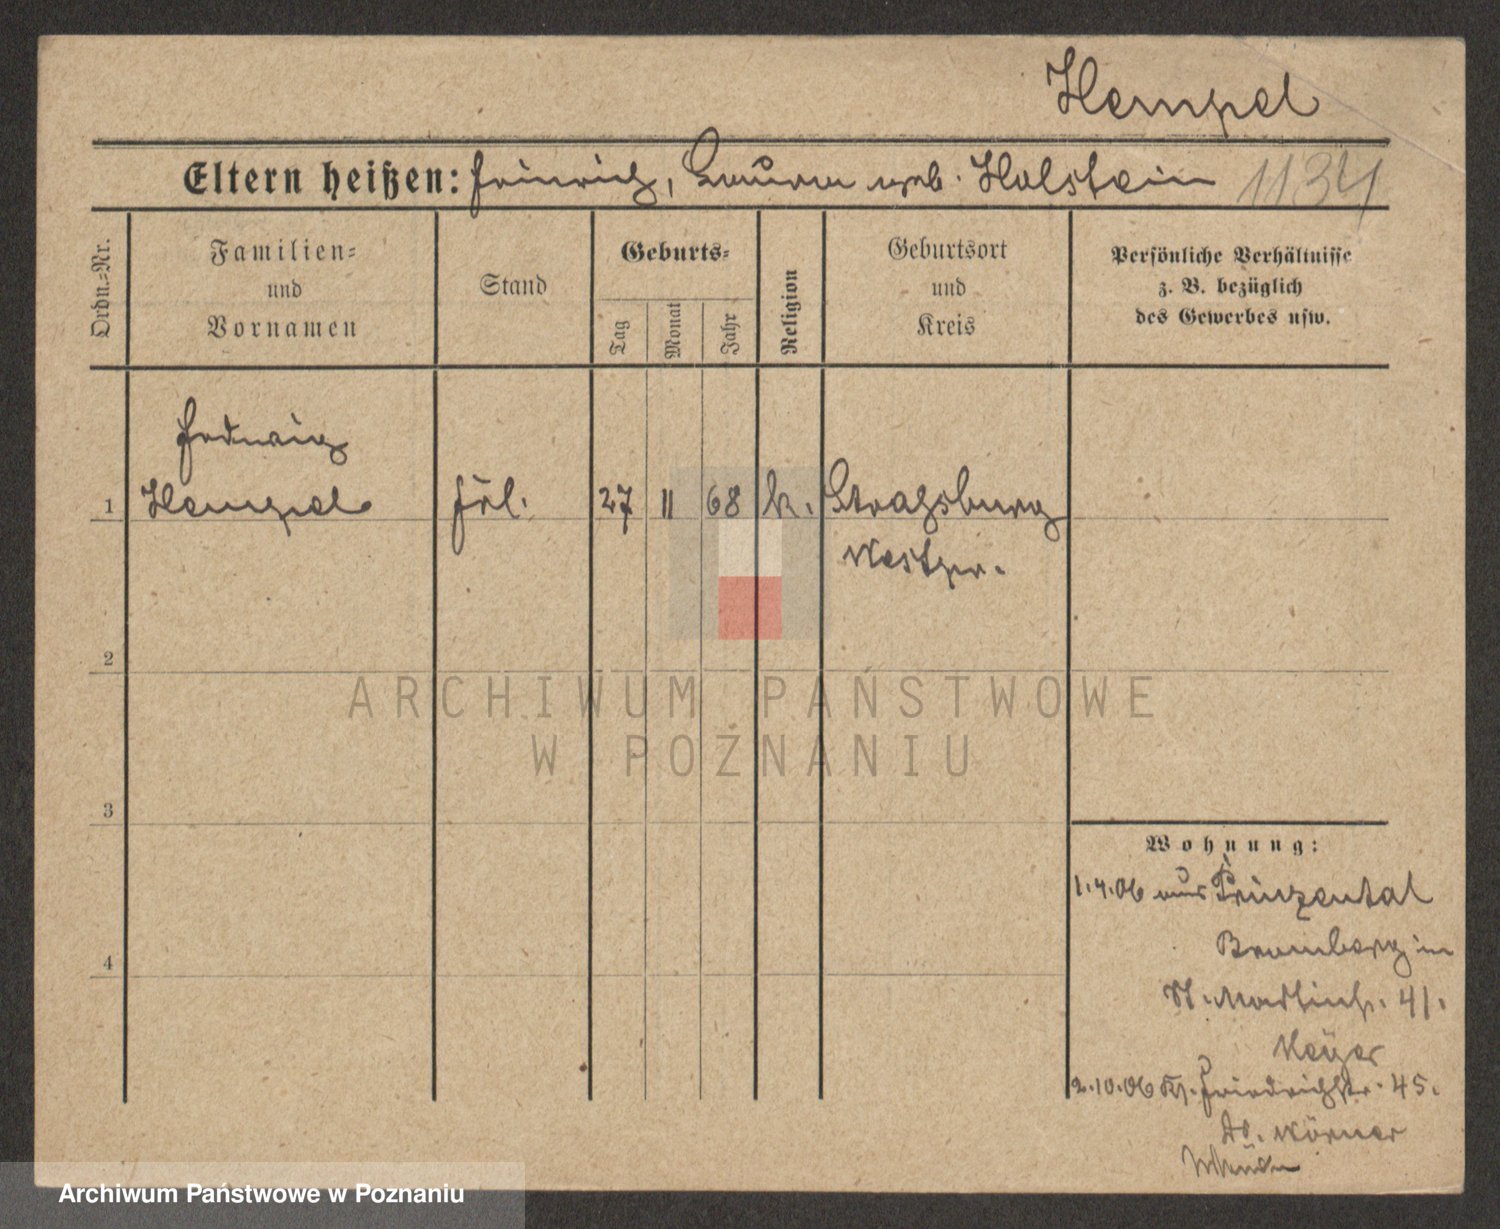 Hempel
Eltern heißen: Heinrich, Laura geb. Holstein 1134
Ordn.-Nr.
Familien-
und
Vornamen
Stand
Geburts-
Tag
Monat
Jahr
Religion
Geburtsort
und
Kreis
Persönliche Verhältnisse
z. B. bezüglich
des Gewerbes usw.
Hedwig
1 Hempel Frl. 27 11 68 k. Strassburg
Westpr.
2
ARCHIWUM PAŃSTWOWE
W POZNANIU
3
Wohnung:
1.4.06 aus Prinzental
Bromberg in
St. Martinstr. 41.
4
2.10.06 Friedrichstr. 45.
Körner
Archiwum Państwowe w Poznaniu